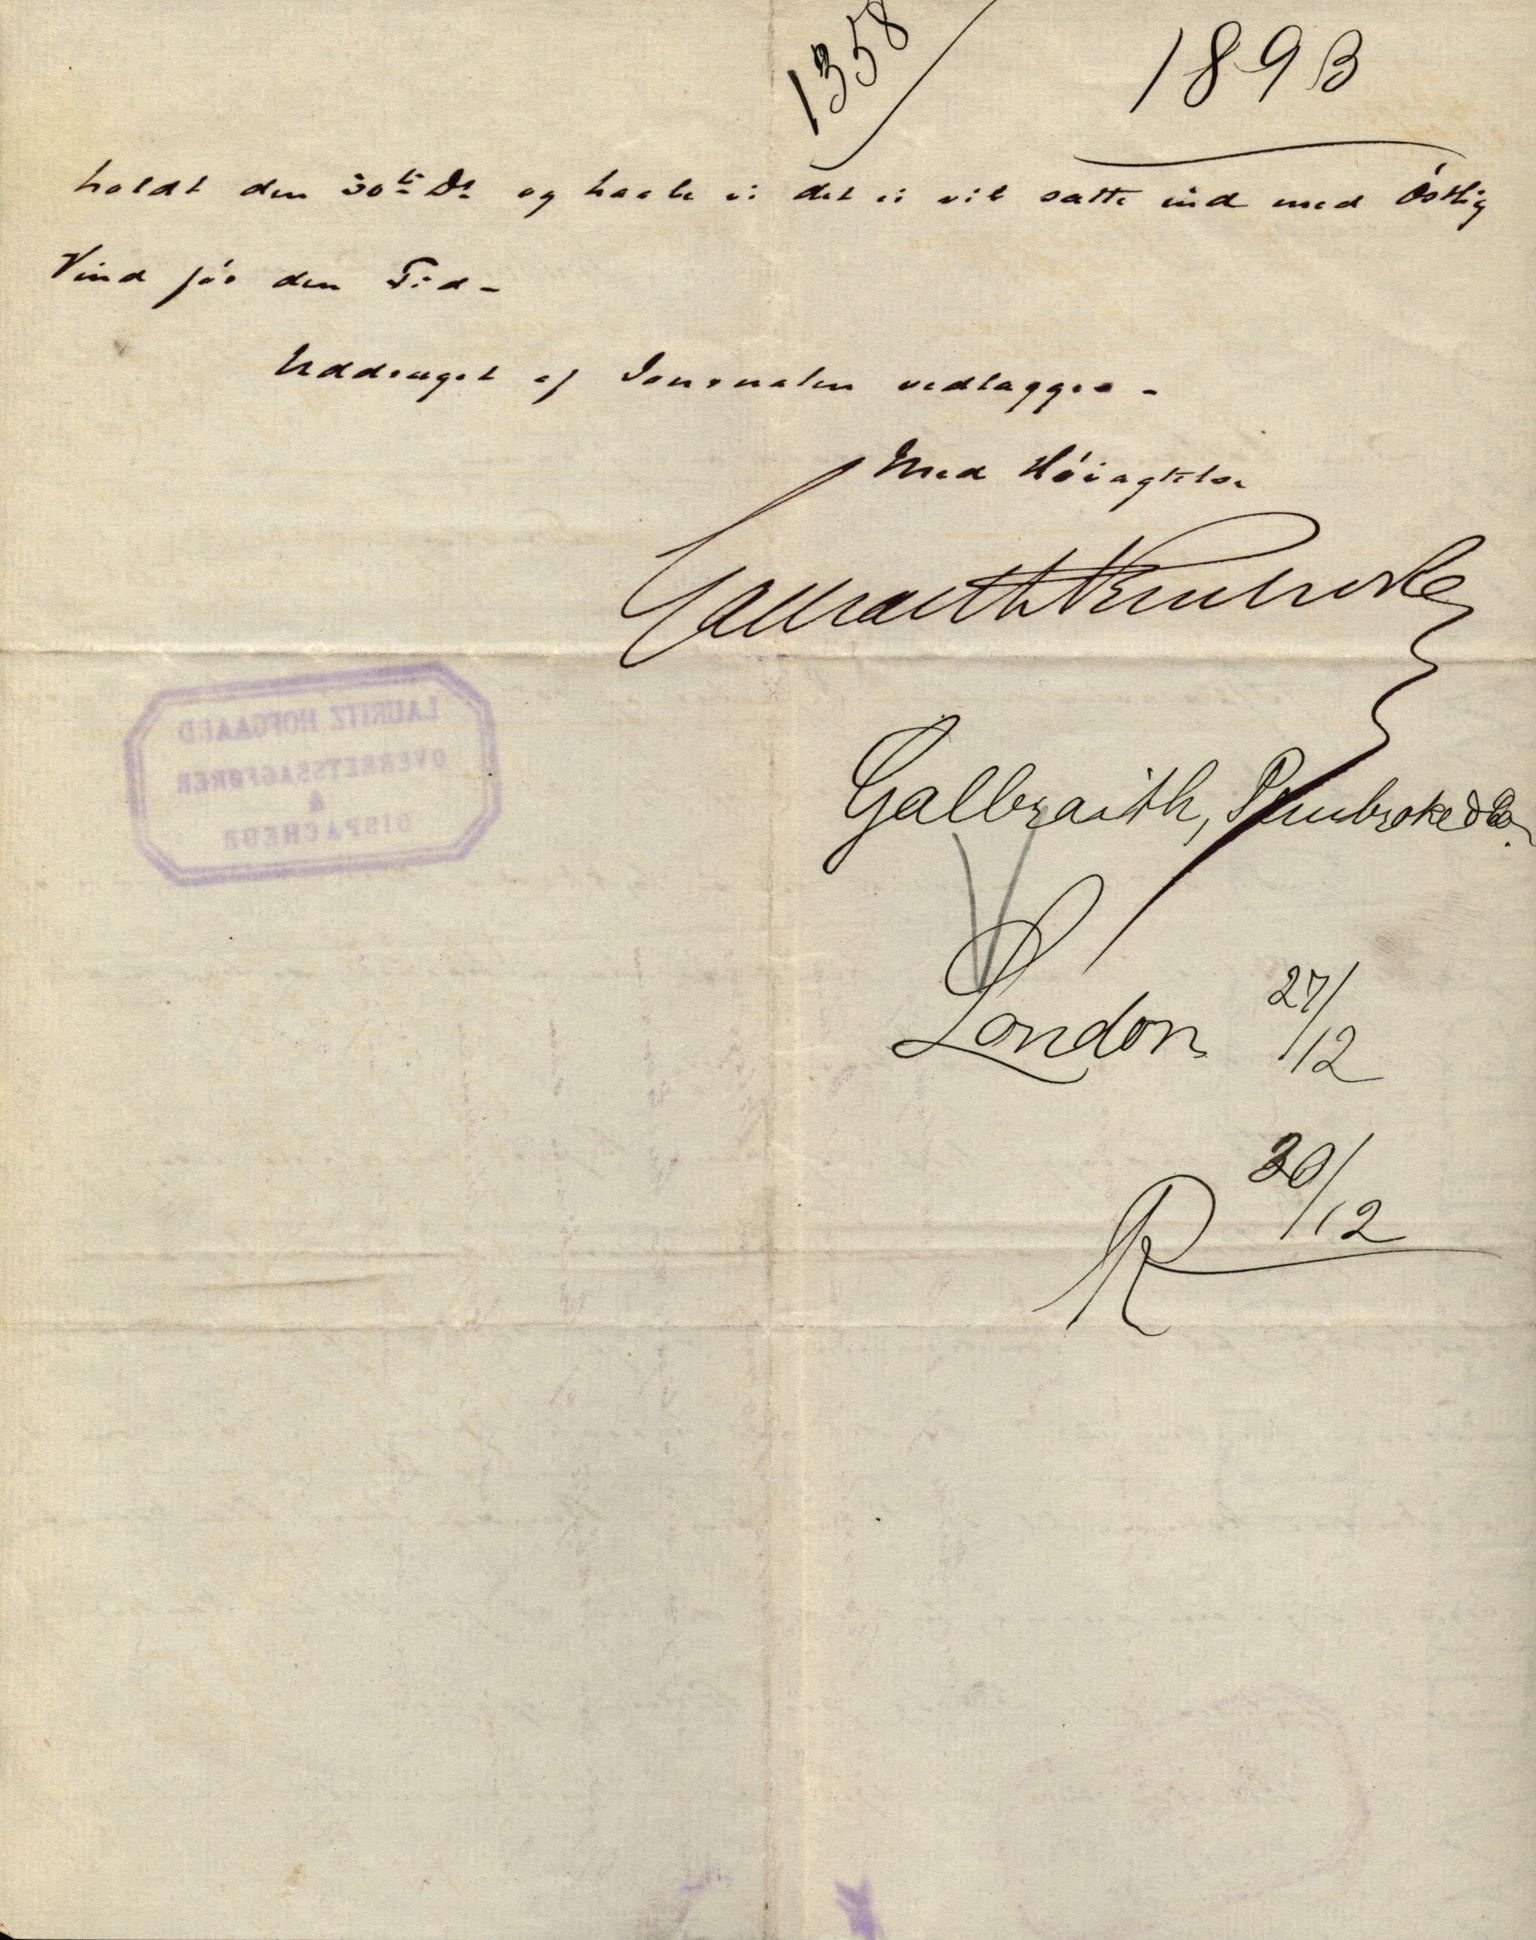 1358
1893
holdt den 30te Ds og haabe vi det ei vil sætte ind med Östlig
Vind för den Tid-
Uddraget af Journalen vedlægges -
Med Höiagtelse
Galbraith Pembroke
LAURITZ HOFGAARD
OVERRETSSAGFØRER
&
DISPACHEUR
Galbraith, Pembroke & Co.
London 27/12
R 30/12